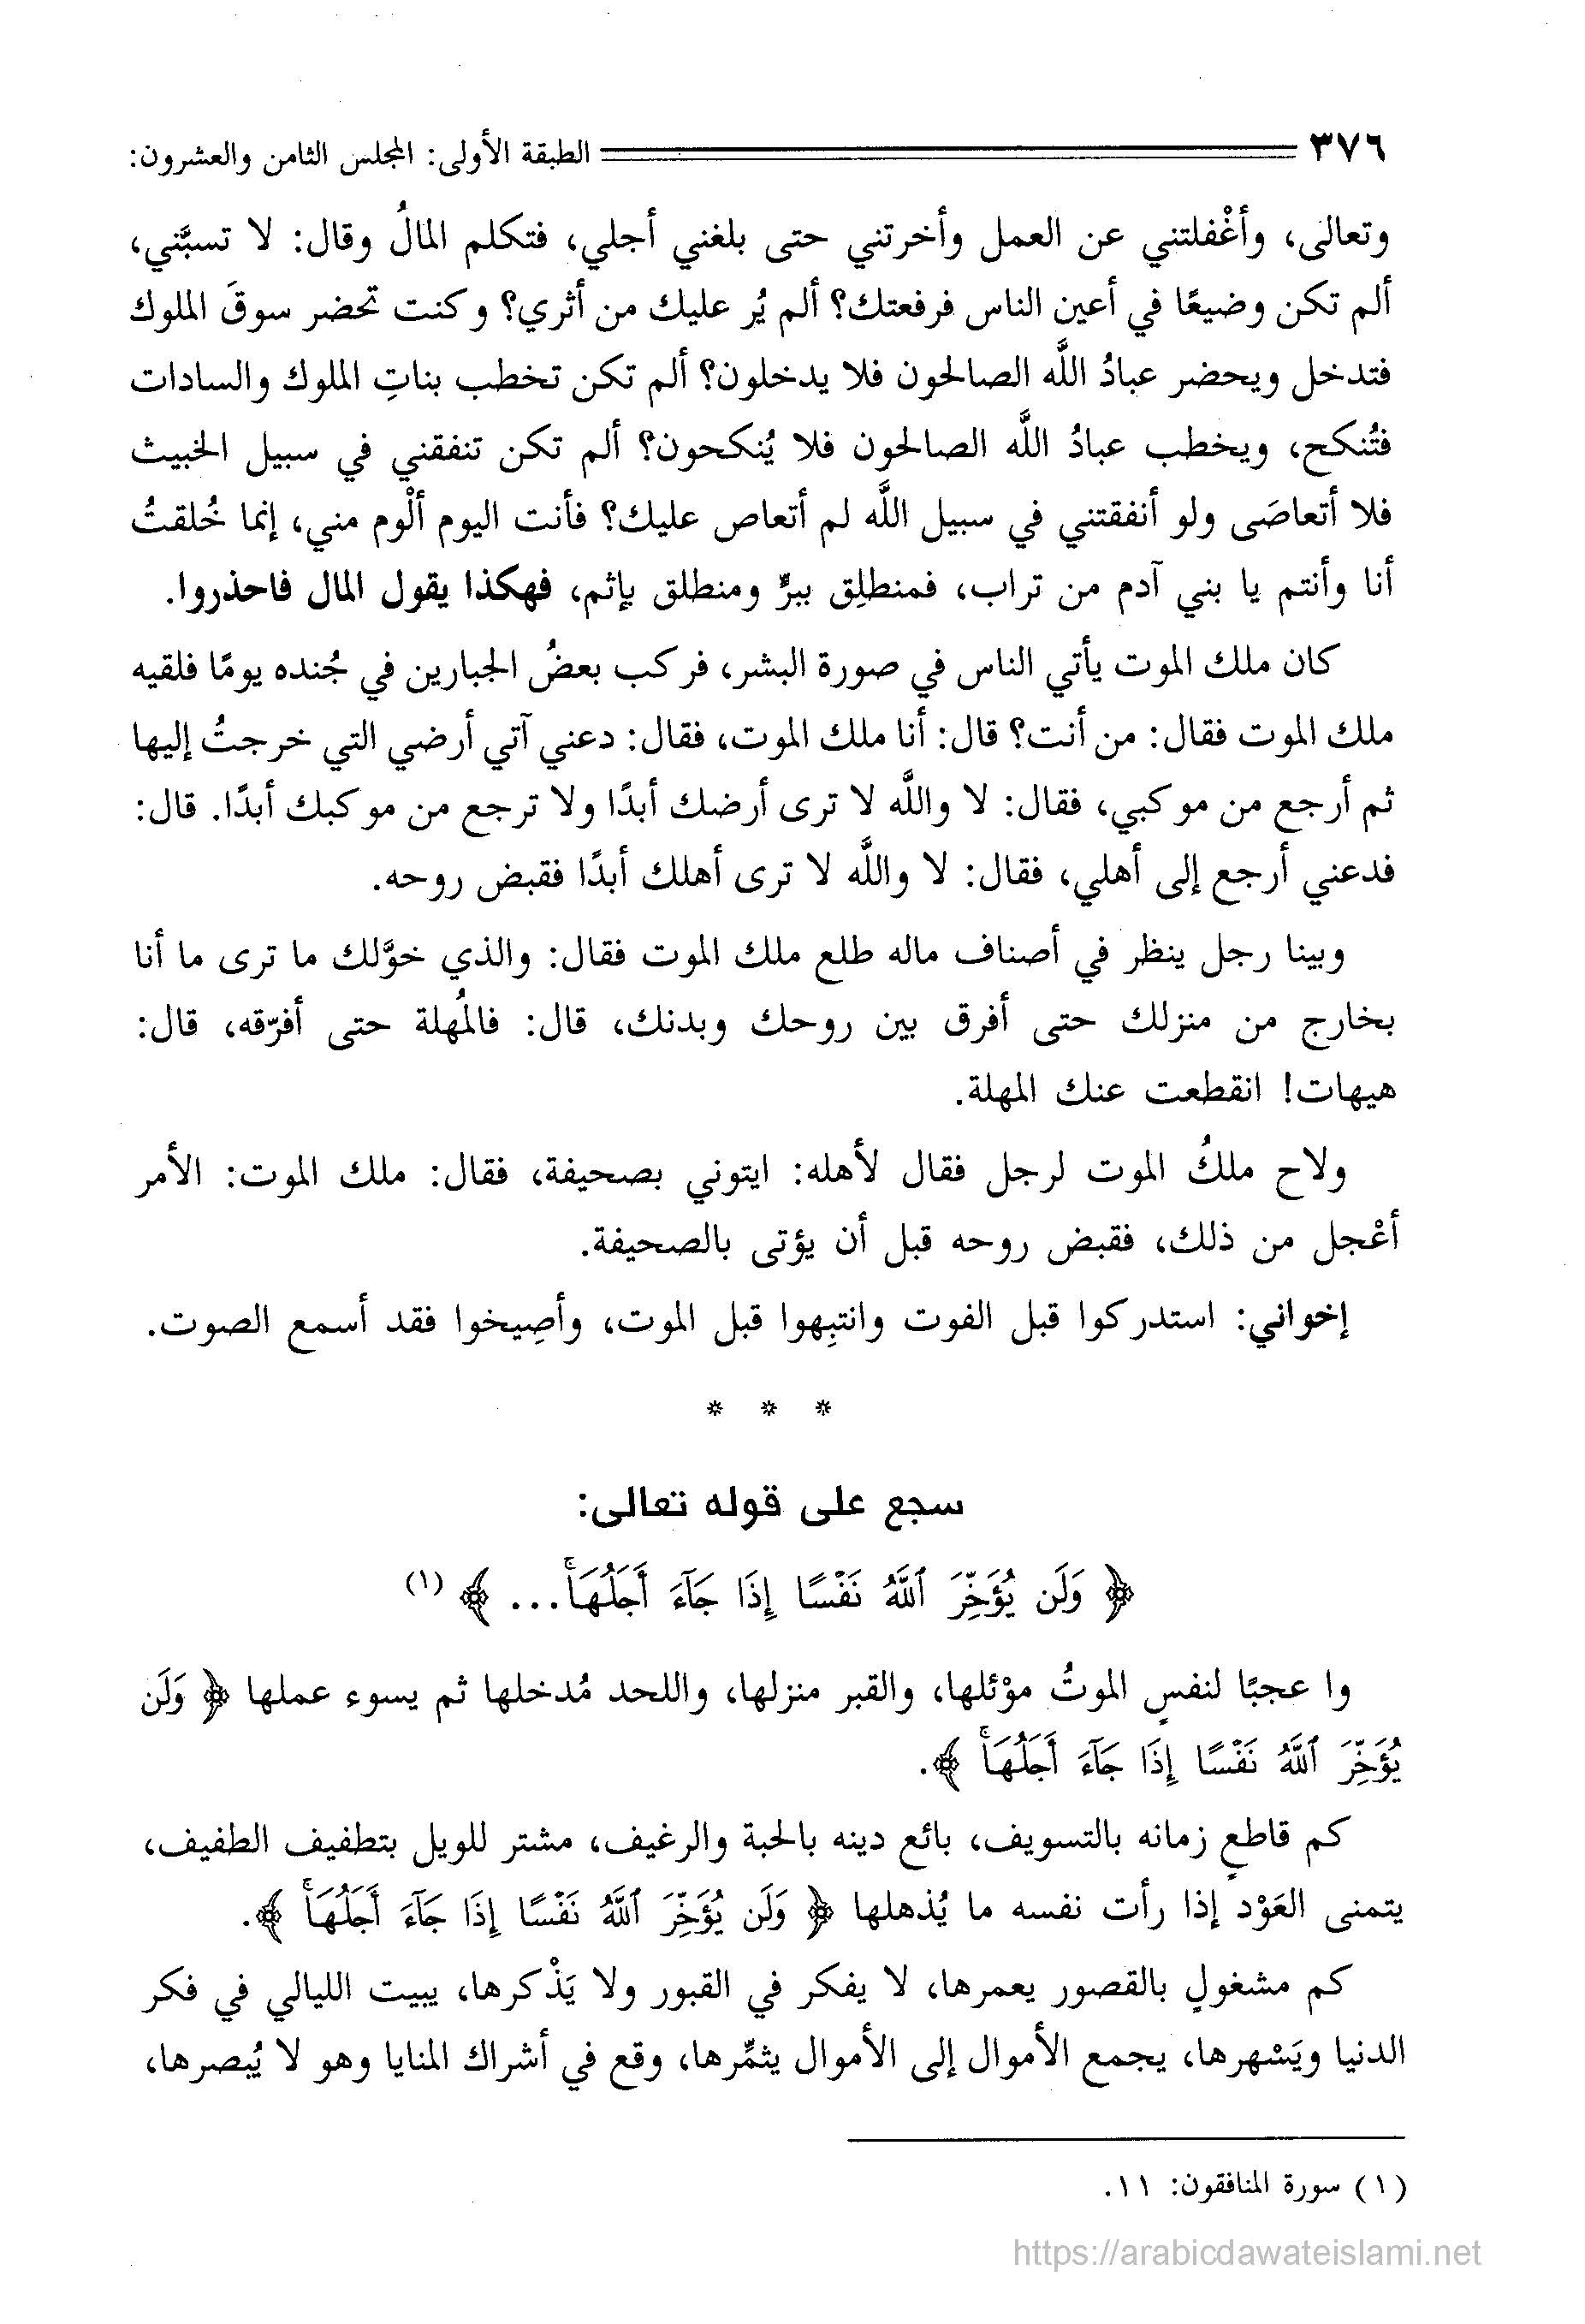 ٣٧٦ الطبقة الأولى: المجلس الثامن والعشرون:
وتعالى، وأغْفلتني عن العمل وأخرتني حتى بلغني أجلي، فتكلم المالُ وقال: لا تسبَّني،
ألم تكن وضيعًا في أعين الناس فرفعتك؟ ألم يُر عليك من أثري؟ وكنت تحضر سوقَ الملوك
فتدخل ويحضر عبادُ اللَّه الصالحون فلا يدخلون؟ ألم تكن تخطب بناتِ الملوك والسادات
فتُنكح، ويخطب عبادُ اللَّه الصالحون فلا يُنكحون؟ ألم تكن تنفقني في سبيل الخبيث
فلا أتعاصَى ولو أنفقتني في سبيل اللَّه لم أتعاص عليك؟ فأنت اليوم ألْوم مني، إنما خُلقتُ
أنا وأنتم يا بني آدم من تراب، فمنطلِق ببرٍّ ومنطلق بإثم، فهكذا يقول المال فاحذروا.
كان ملك الموت يأتي الناس في صورة البشر، فركب بعضُ الجبارين في جُنده يومًا فلقيه
ملك الموت فقال: من أنت؟ قال: أنا ملك الموت، فقال: دعني آتي أرضي التي خرجتُ إليها
ثم أرجع من موكبي، فقال: لا واللَّه لا ترى أرضك أبدًا ولا ترجع من موكبك أبدًا. قال:
فدعني أرجع إلى أهلي، فقال: لا واللَّه لا ترى أهلك أبدًا فقبض روحه.
وبينا رجل ينظر في أصناف ماله طلع ملك الموت فقال: والذي خوَّلك ما ترى ما أنا
بخارج من منزلك حتى أفرق بين روحك وبدنك، قال: فالمُهلة حتى أفرّقه، قال:
هيهات! انقطعت عنك المهلة.
ولاح ملكُ الموت لرجل فقال لأهله: ايتوني بصحيفة، فقال: ملك الموت: الأمر
أعْجل من ذلك، فقبض روحه قبل أن يؤتى بالصحيفة.
إخواني: استدركوا قبل الفوت وانتبِهوا قبل الموت، وأصِيخوا فقد أسمع الصوت.
* * *
سجع على قوله تعالى:
﴿ وَلَن يُؤَخِّرَ ٱللَّهُ نَفْسًا إِذَا جَآءَ أَجَلُهَاۚ... ﴾ (١)
وا عجبًا لنفسٍ الموتُ موْئلها، والقبر منزلها، واللحد مُدخلها ثم يسوء عملها ﴿ وَلَن
يُؤَخِّرَ ٱللَّهُ نَفْسًا إِذَا جَآءَ أَجَلُهَاۚ ﴾.
كم قاطعٍ زمانه بالتسويف، بائع دينه بالحبة والرغيف، مشتر للويل بتطفيف الطفيف،
يتمنى العَوْد إذا رأت نفسه ما يُذهلها ﴿ وَلَن يُؤَخِّرَ ٱللَّهُ نَفْسًا إِذَا جَآءَ أَجَلُهَاۚ ﴾.
كم مشغولٍ بالقصور يعمرها، لا يفكر في القبور ولا يَذْكرها، يبيت الليالي في فكر
الدنيا ويَسْهرها، يجمع الأموال إلى الأموال يثمِّرها، وقع في أشراك المنايا وهو لا يُبصرها،
(١) سورة المنافقون: ١١.
https://arabicdawateislami.net